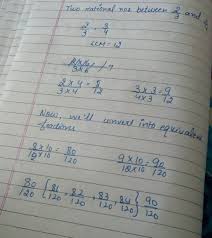 Two rational nos between 2/3 and
2/3, 3/4
LCM = 12
2×4/3×4 = 8/12 3×3/4×3 = 9/12
Now, we'll convert into equivalent
fractions
8×10/12×10 = 80/120 9×10/12×10 = 90/120
80/120 { 81/120, 82/120, 83/120, 84/120 } 90/120